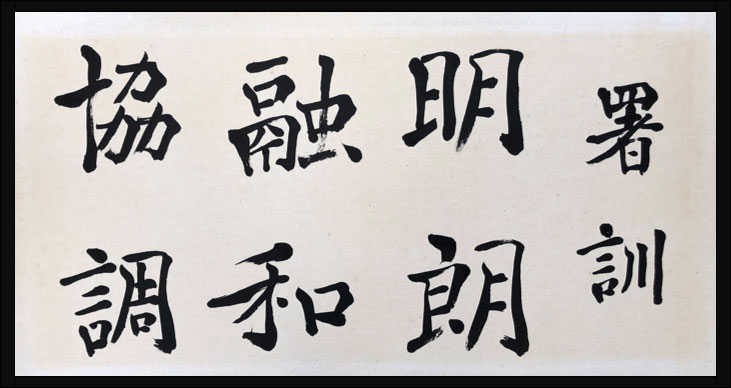 署訓
明朗
融和
協調